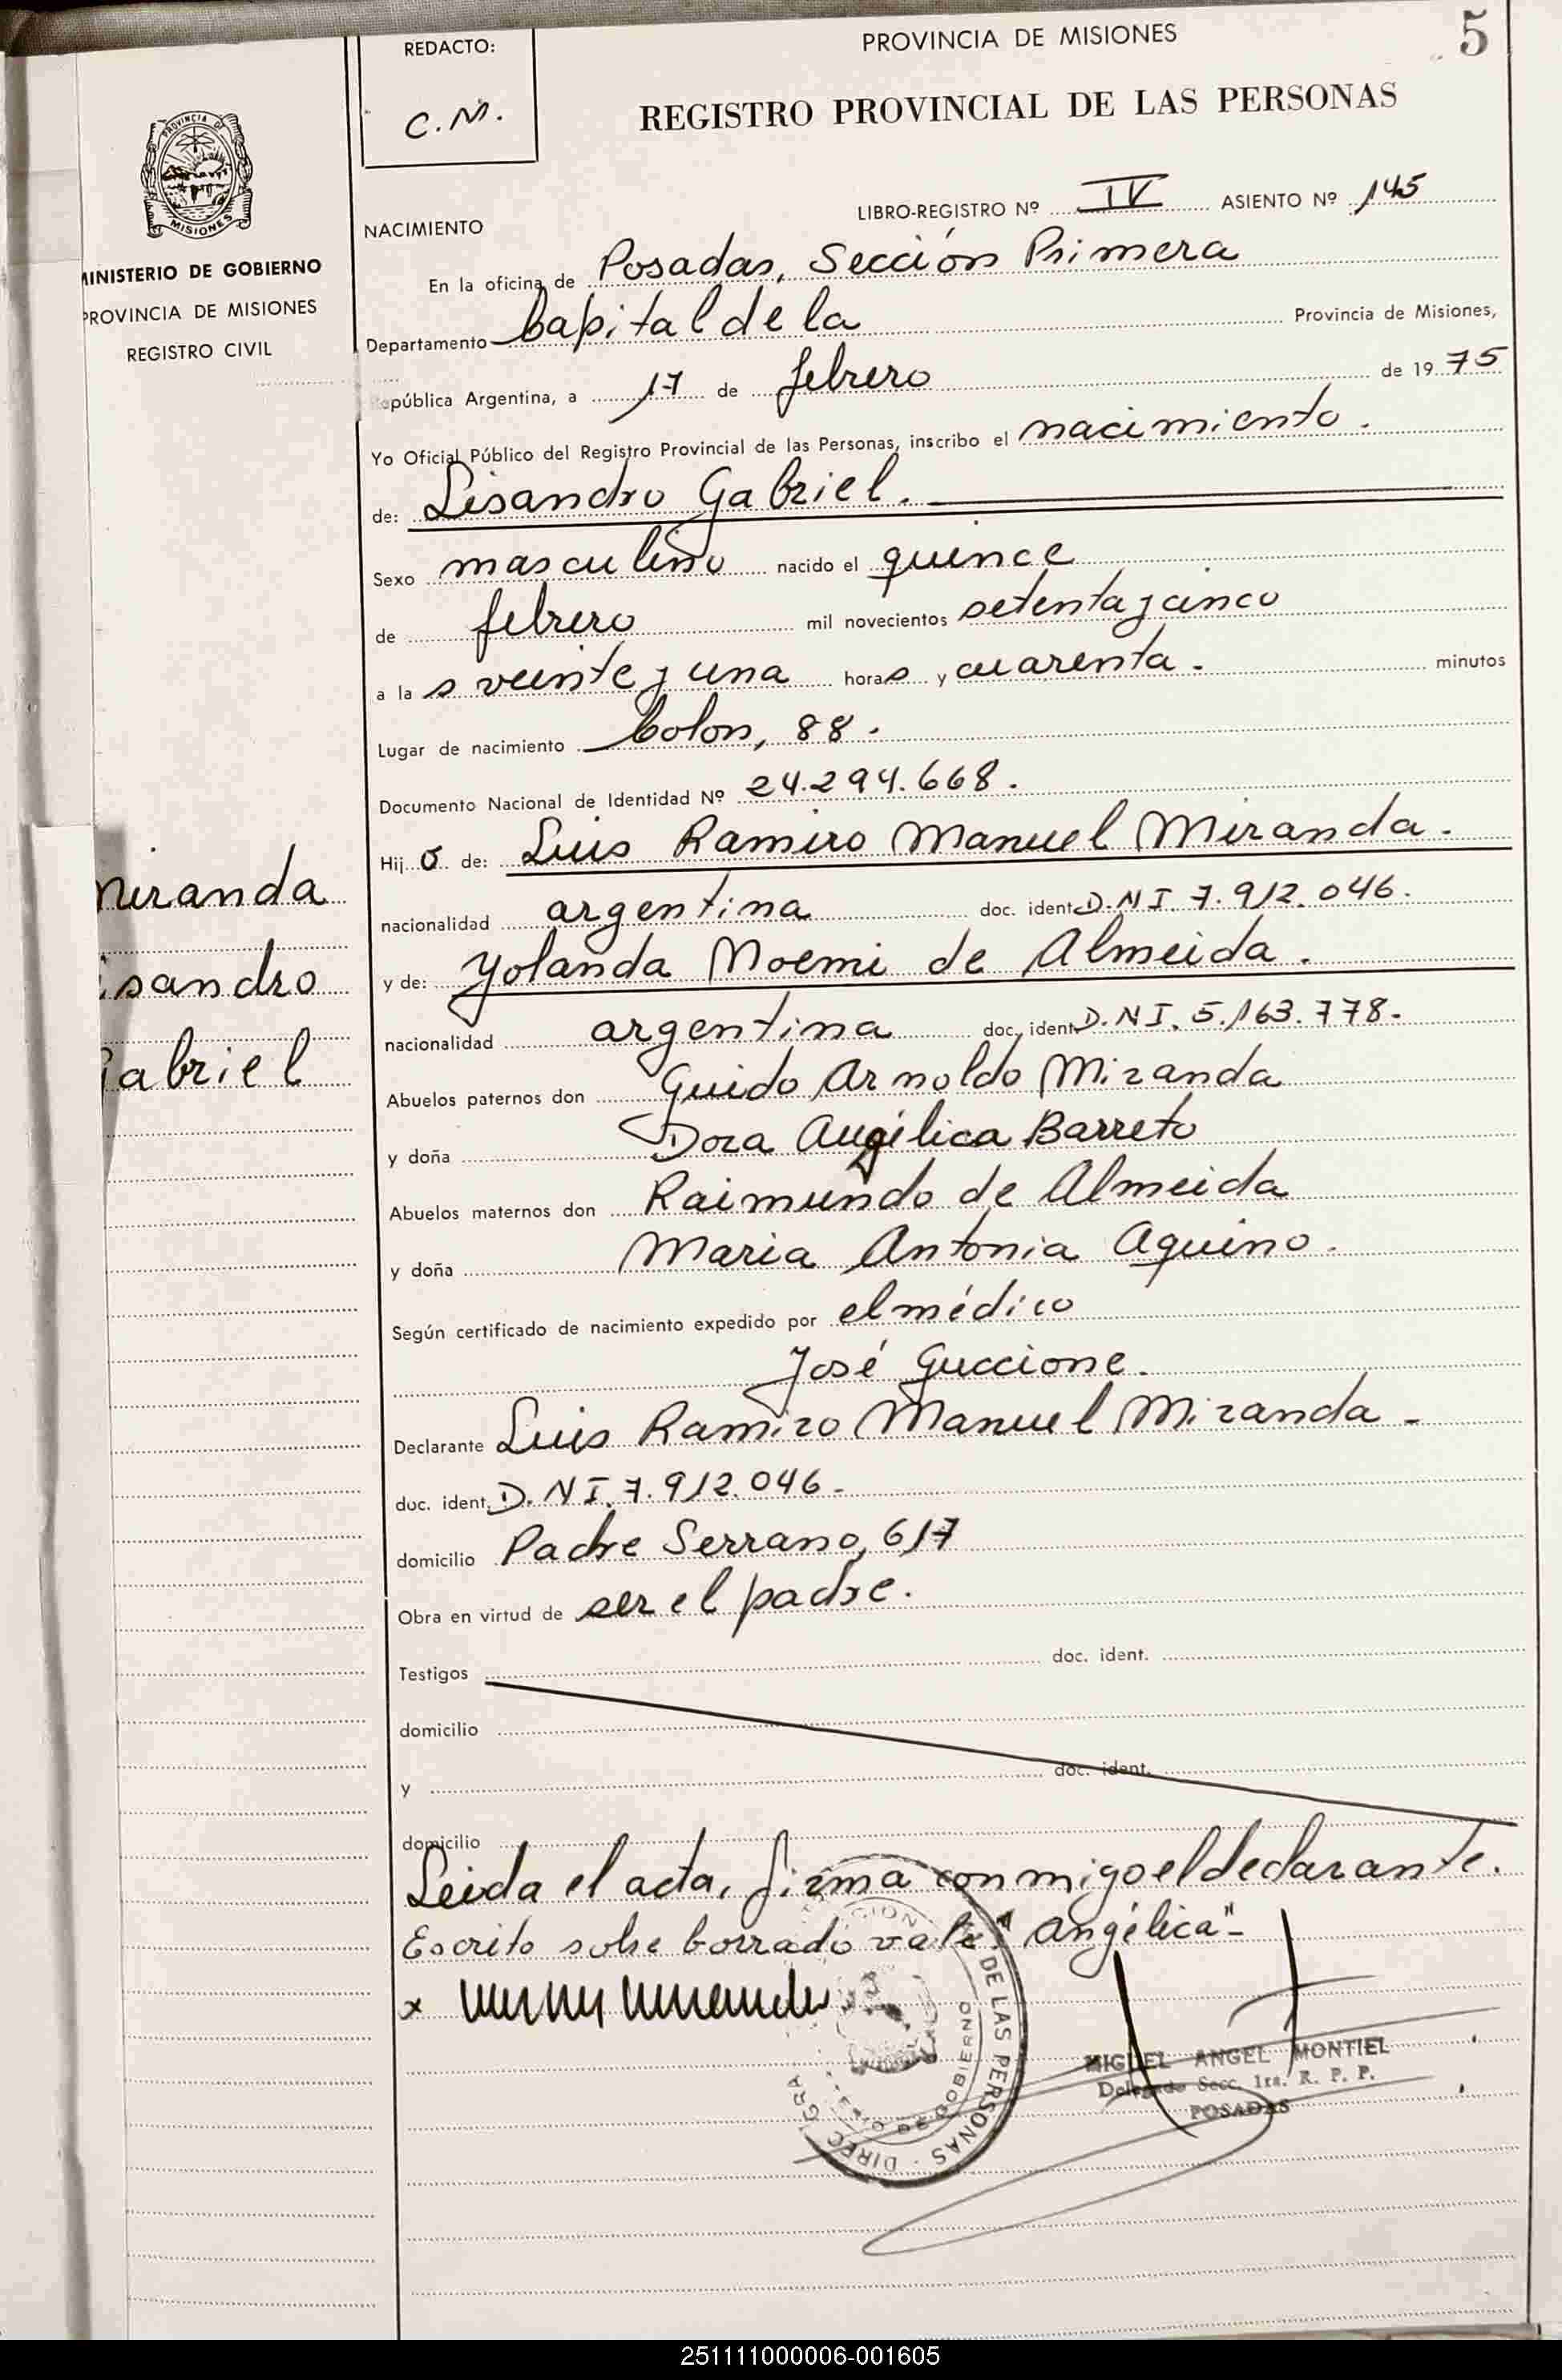 PROVINCIA DE MISIONES
5
REDACTO:
C.M.
REGISTRO PROVINCIAL DE LAS PERSONAS
PROVINCIA DE
MISIONES
MINISTERIO DE GOBIERNO
PROVINCIA DE MISIONES
REGISTRO CIVIL
LIBRO-REGISTRO Nº IV ASIENTO Nº 145
NACIMIENTO
En la oficina de Posadas, Sección Primera
Departamento Capital de la Provincia de Misiones,
República Argentina, a 17 de febrero de 1975
Yo Oficial Público del Registro Provincial de las Personas, inscribo el nacimiento.
de: Lisandro Gabriel.
Sexo masculino nacido el quince
de febrero mil novecientos setenta y cinco
a las veinte y una horas y cuarenta. minutos
Lugar de nacimiento Colon, 88.
Documento Nacional de Identidad Nº 24.294.668.
Hijo de: Luis Ramiro Manuel Miranda.
nacionalidad argentina doc. ident. D.N.I. 7.912.046.
y de: Yolanda Noemi de Almeida.
nacionalidad argentina doc. ident. D.N.I. 5.163.778.
Abuelos paternos don Guido Arnoldo Miranda
y doña Dora Angélica Barreto
Abuelos maternos don Raimundo de Almeida
y doña Maria Antonia Aquino.
Según certificado de nacimiento expedido por el médico
José Guccione.
Declarante Luis Ramiro Manuel Miranda.
doc. ident. D.N.I. 7.912.046.
domicilio Padre Serrano, 617
Obra en virtud de ser el padre.
Testigos doc. ident.
domicilio
y doc. ident.
domicilio
Leida el acta, firma conmigo el declarante.
Escrito sobre borrado vale: "Angélica"-
x
Miranda
Lisandro
Gabriel
DE LAS PERSONAS - DIREC GRA
DE GOBIERNO
MIGUEL ANGEL MONTIEL
Delegado Secc. 1ra. R. P. P.
POSADAS
251111000006-001605